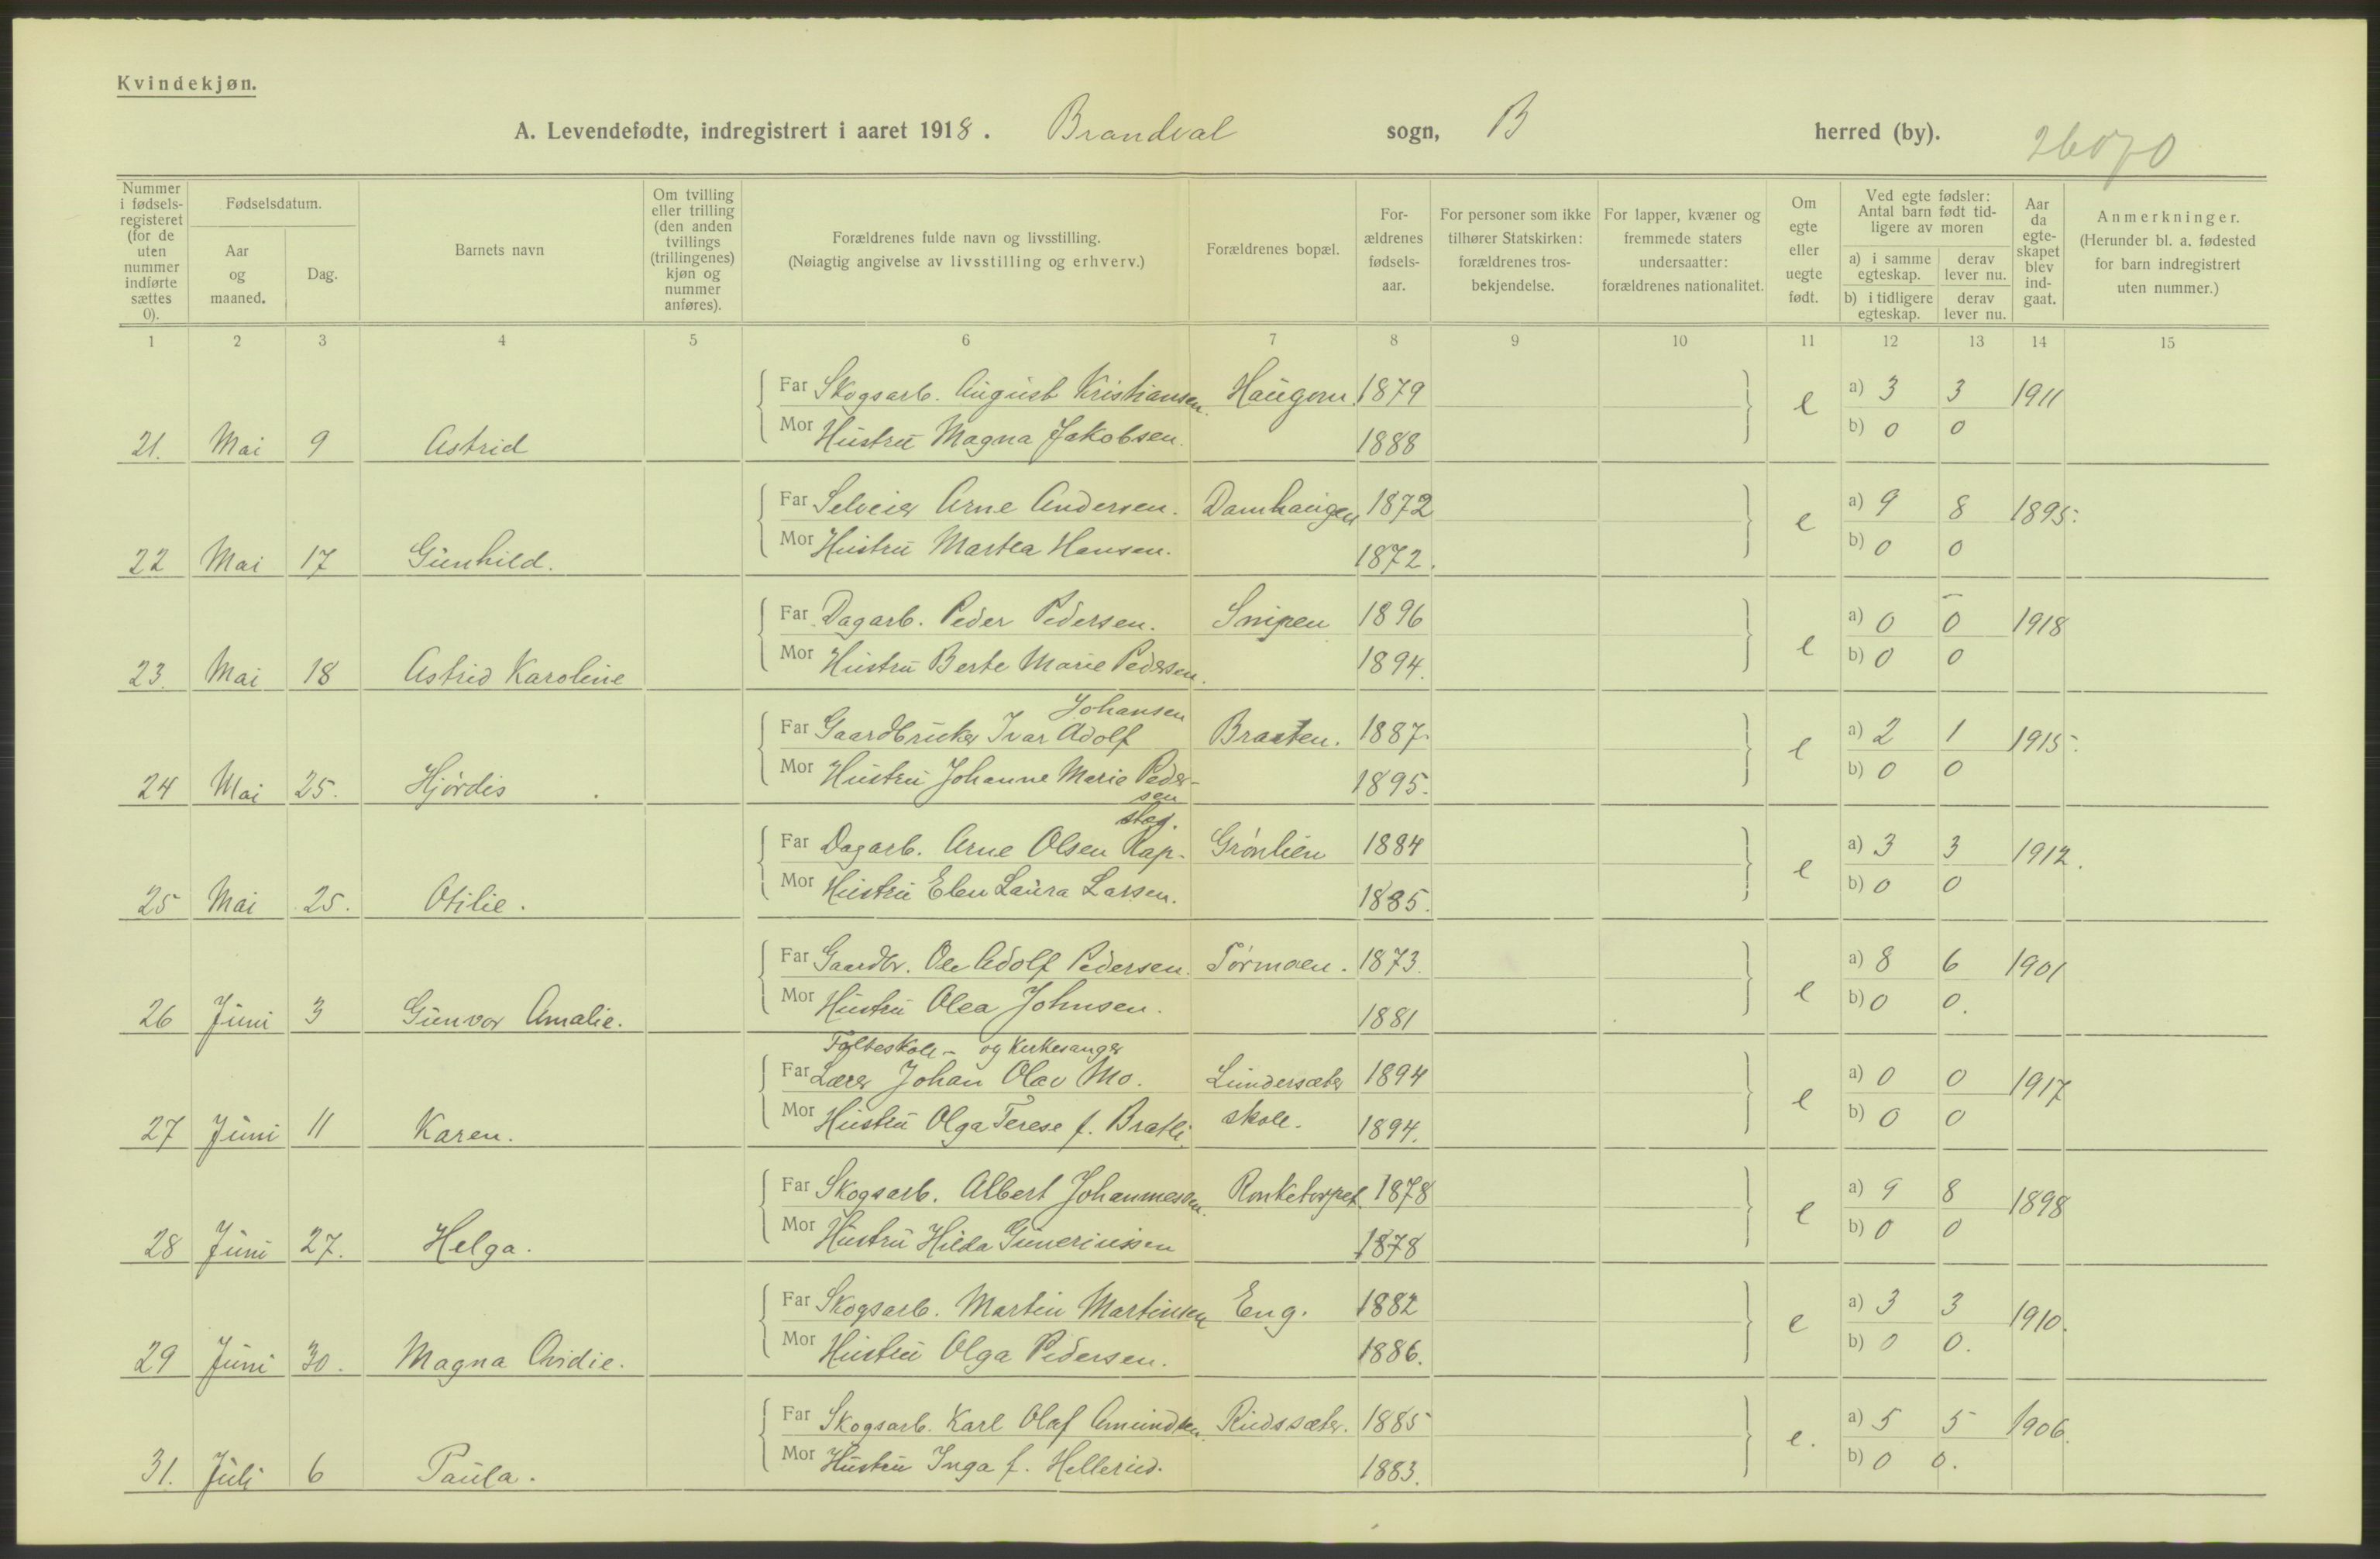 Kvindekjøn.
A. Levendefødte, indregistrert i aaret 1918. Brandval sogn, B herred (by). 26070
Nummer i fødsels-registeret (for de uten nummer indførte sættes 0).
Fødselsdatum.
Aar og maaned.
Dag.
Barnets navn
Om tvilling eller trilling (den anden tvillings (trillingenes) kjøn og nummer anføres).
Forældrenes fulde navn og livsstilling.
(Nøiagtig angivelse av livsstilling og erhverv.)
Forældrenes bopæl.
For-ældrenes fødsels-aar.
For personer som ikke tilhører Statskirken: forældrenes tros-bekjendelse.
For lapper, kvæner og fremmede staters undersaatter: forældrenes nationalitet.
Om egte eller uegte født.
Ved egte fødsler: Antal barn født tid-ligere av moren
a) i samme egteskap.
derav lever nu.
b) i tidligere egteskap.
derav lever nu.
Aar da egte-skapet blev ind-gaat.
Anmerkninger.
(Herunder bl. a. fødested for barn indregistrert uten nummer.)
1 2 3 4 5 6 7 8 9 10 11 12 13 14 15
Far Skogsarb. August Kristiansen. Haugom 1879 e a) 3 3 1911
21. Mai 9 Astrid Mor Hustru Magna Jakobsen. 1888 b) 0 0
Far Selveier Arne Andersen. Damhaugen 1872 e a) 9 8 1895.
22 Mai 17 Gunhild. Mor Hustru Martea Hansen. 1872. b) 0 0
Far Dagarb. Peder Pedersen. Snipen 1896 e a) 0 0 1918
23. Mai 18 Astrid Karoline Mor Hustru Berte Marie Pedersen. 1894. b) 0 0
Johansen
Far Gaardbruker Ivar Adolf Braaten. 1887. e a) 2 1 1915.
24 Mai 25. Hjørdis Mor Hustru Johanne Marie Peder- 1895. b) 0 0
sen
stad.
Far Dagarb. Arne Olsen Kap- Grønlien 1884 e a) 3 3 1912.
25 Mai 25. Otilie. Mor Hustru Elen Laura Larsen. 1885. b) 0 0
Far Gaardbr. Ole Adolf Pedersen. Tørmoen. 1873. e a) 8 6 1901
26 Juni 3 Gunvor Amalie. Mor Hustru Olea Johnsen. 1881 b) 0 0.
Folkeskole- og Kirkesanger
Far Lærer Johan Olav Mo. Lundersæter 1894 e a) 0 0 1917
27 Juni 11 Karen. Mor Hustru Olga Terese f. Bratli skole. 1894. b) 0 0
Far Skogsarb. Albert Johannesen. Ronketorpet 1878 e a) 9 8 1898
28 Juni 27. Helga. Mor Hustru Hilda Guneriussen 1878 b) 0 0
Far Skogsarb. Martin Martinsen Eng. 1882 e a) 3 3 1910.
29 Juni 30. Magna Ovidie. Mor Hustru Olga Pedersen. 1886. b) 0 0.
Far Skogsarb. Karl Olaf Amundsen. Rudssæter. 1885 e. a) 5 5 1906.
31. Juli 6 Paula. Mor Hustru Inga f. Hellerud. 1883. b) 0 0.